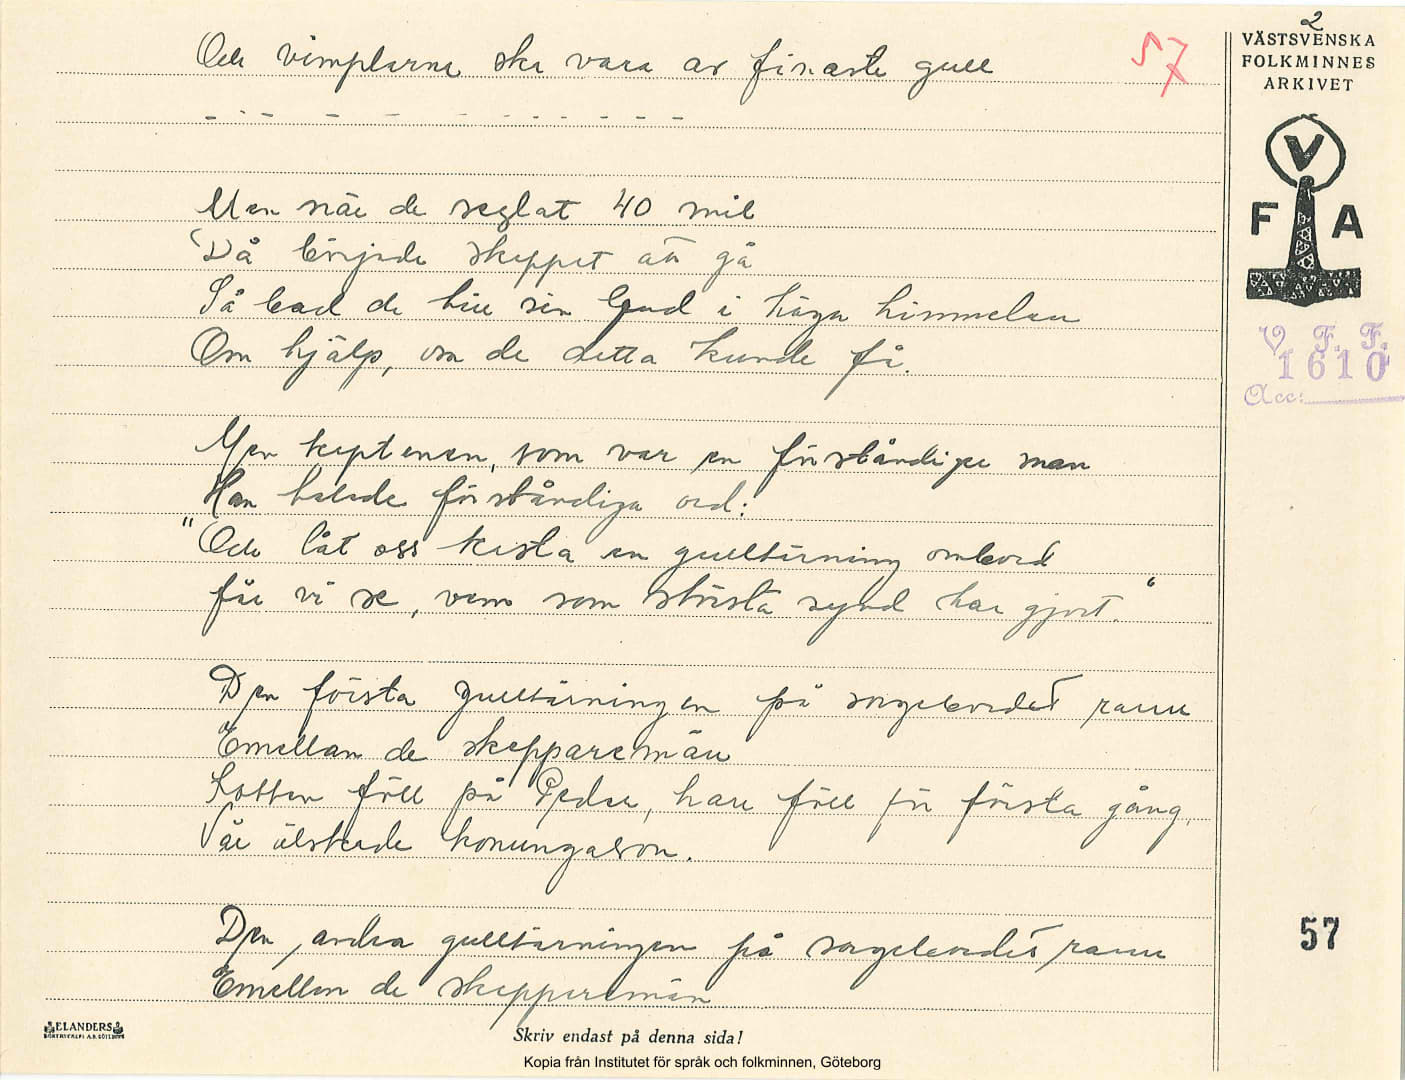 2
VÄSTSVENSKA
FOLKMINNES
ARKIVET
V
F A
V. F. F.
1610
Acc:
57
Och vimplarna ska vara av finaste gull
- - - - - - - - - - - -
Men när de seglat 40 mil
Då började skeppet att gå
Så bad de till sin Gud i höga himmelen
Om hjälp, om de detta kunde få.
Men kaptenen, som var en förståndiger man
Han talade förståndiga ord:
"Och låt oss kasta en gulltärning ombord
får vi se, vem som största synd har gjort."
Den första gulltärningen på sorgebordet rann
Emellan de skepparemän
Lotten föll på Peder, han föll för första gång,
Vår älskade konungason.
Den andra gulltärningen på sorgebordet rann
Emellan de skepparemän
57
ELANDERS
Skriv endast på denna sida!
Kopia från Institutet för språk och folkminnen, Göteborg